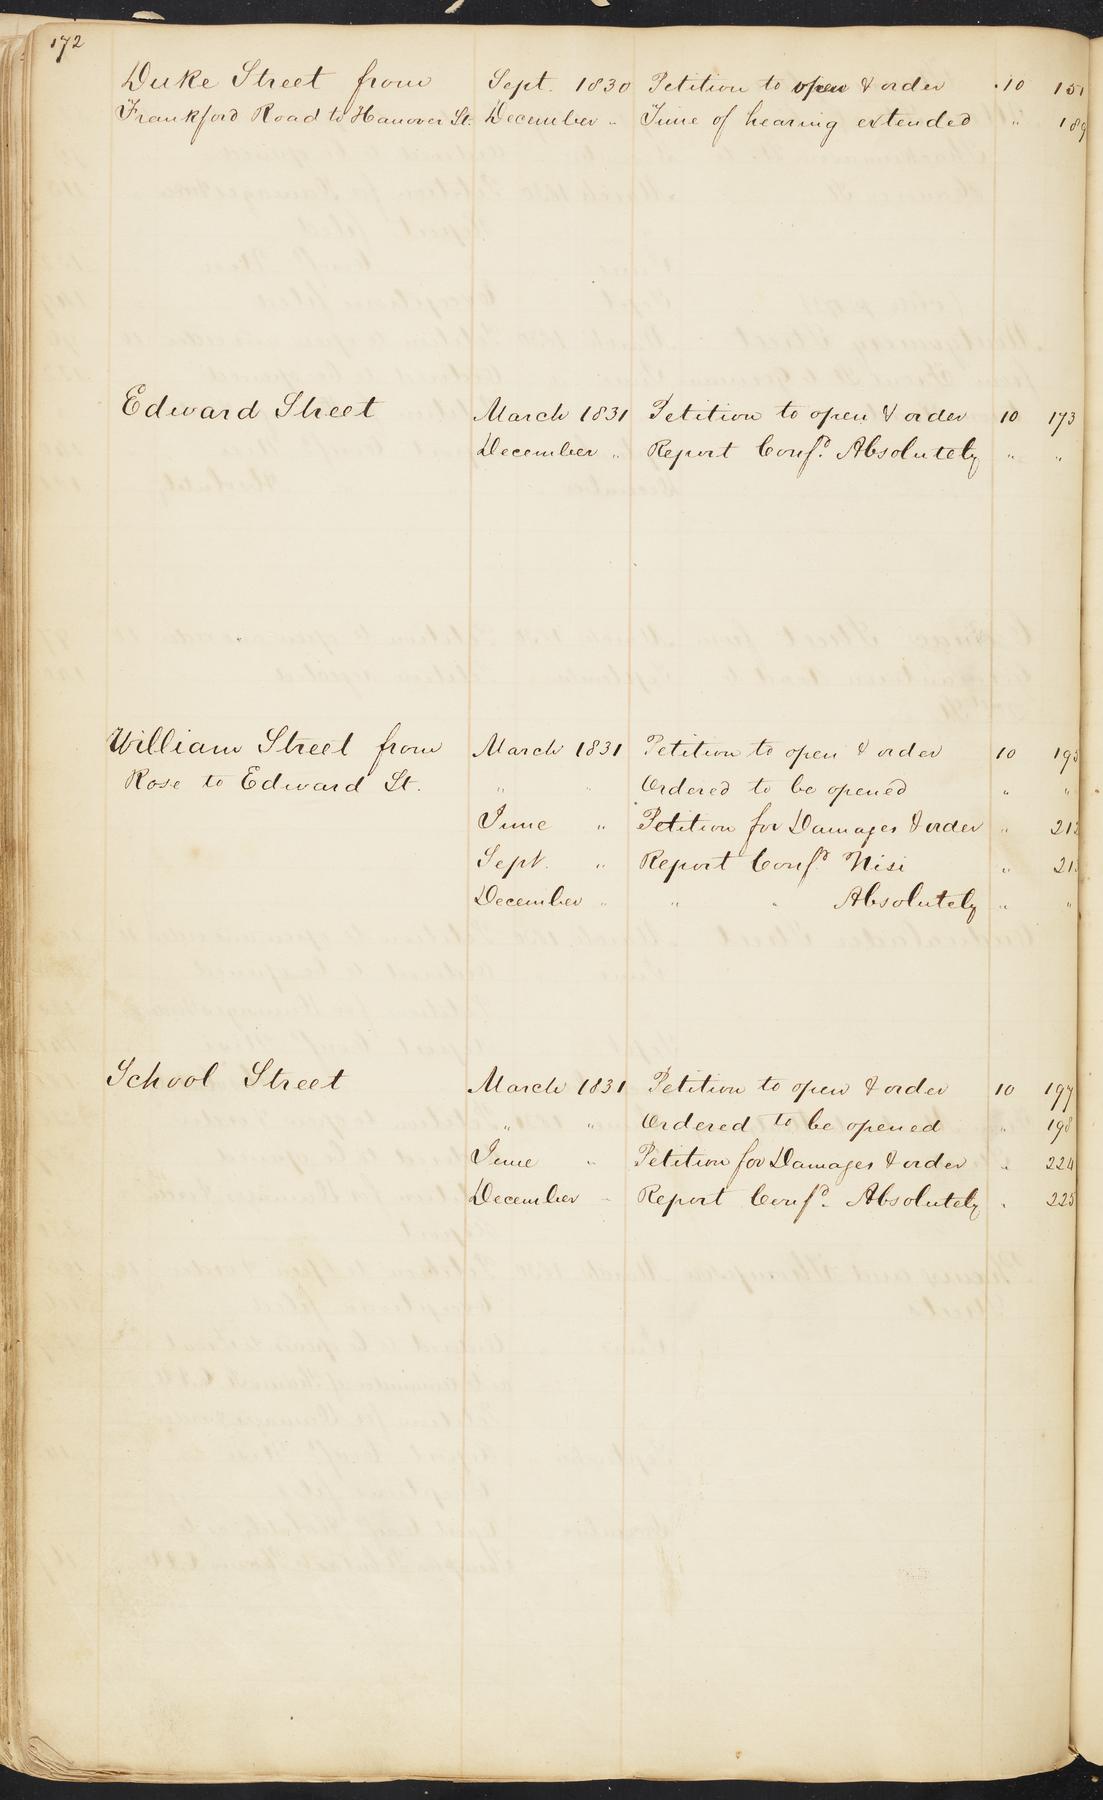 172
Duke Street from Sept. 1830 Petition to open & order 10 151
Frankford Road to Hanover St. December " Time of hearing extended " 189
Edward Street March 1831 Petition to open & order 10 173
December " Report Conf.d Absolutely " "
William Street from March 1831 Petition to open & order 10 195
Rose to Edward St. " " Ordered to be opened " "
June " Petition for Damages & order " 212
Sept. " Report Conf.d Nisi " 21
December " " " Absolutely " "
School Street March 1831 Petition to open & order 10 197
" " Ordered to be opened " 198
June " Petition for Damages & order " 224
December " Report Conf.d Absolutely " 225